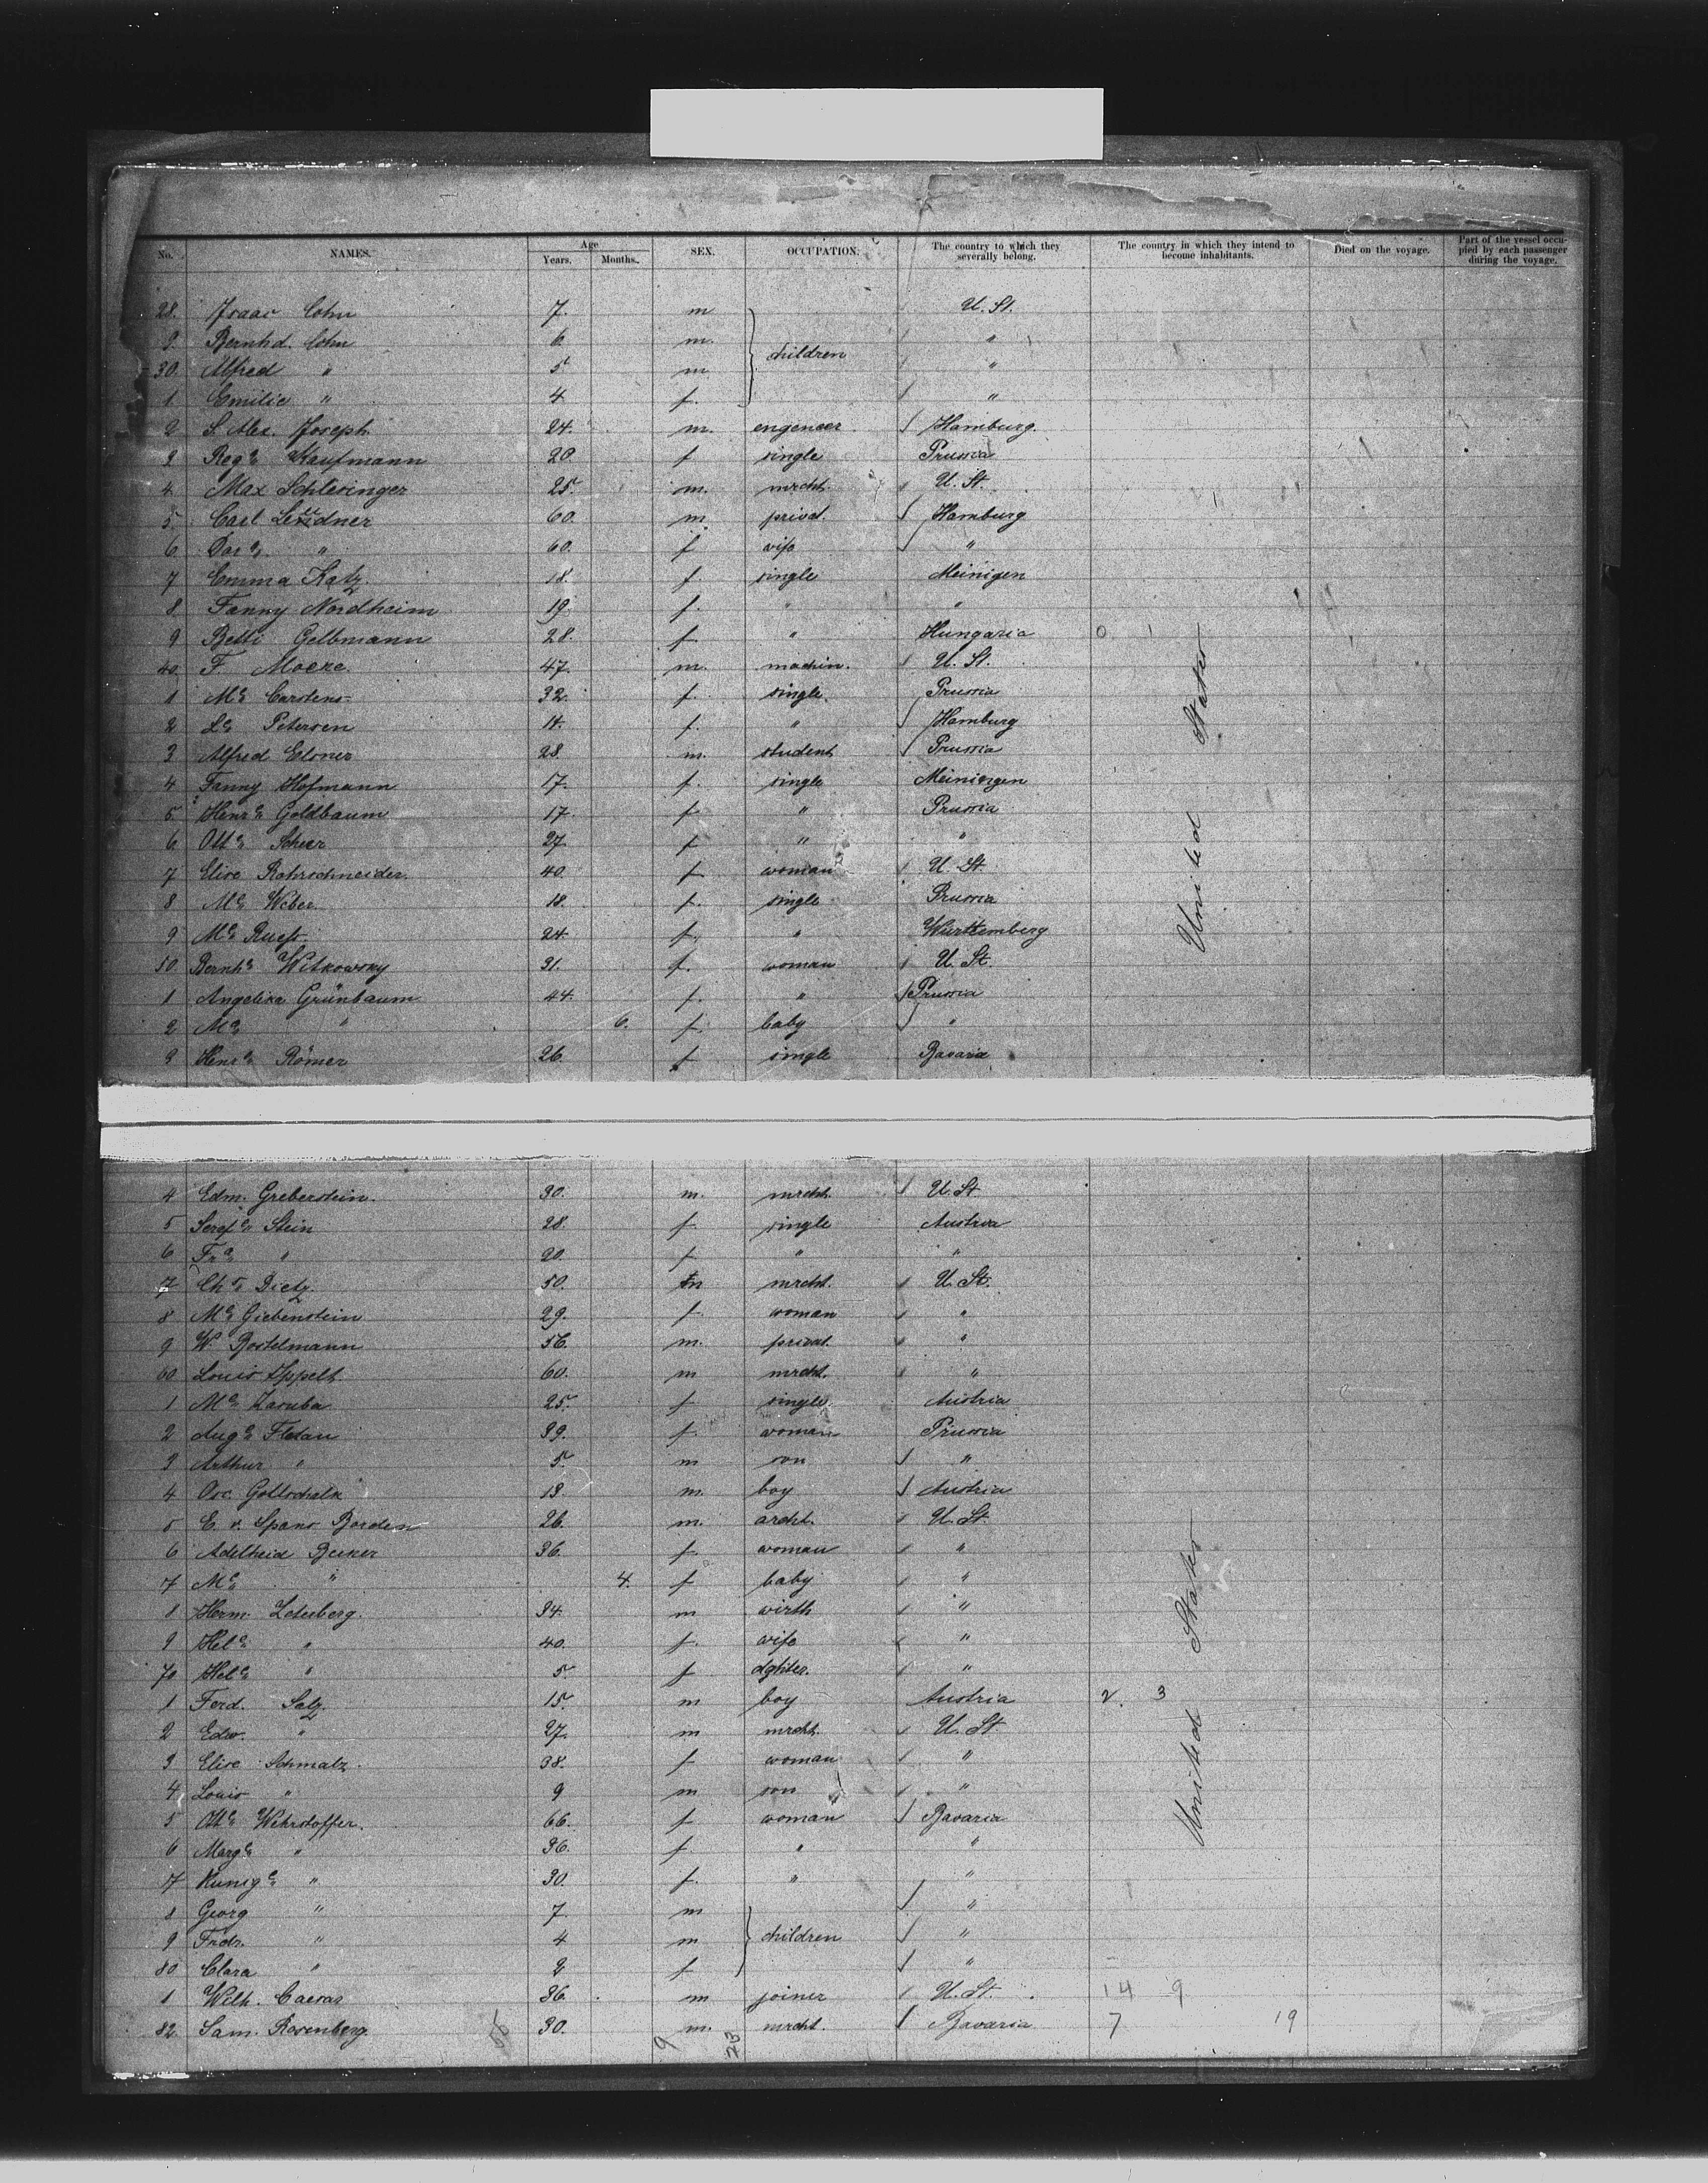 No. NAMES. Age Years. Months. SEX. OCCUPATION. The country to which they severally belong. The country in which they intend to become inhabitants. Died on the voyage. Part of the vessel occupied by each passenger during the voyage.
28. Isaac Cohn 7. m U. St.
9 Bernhd. Cohn 6. m. "
30. Alfred " 5 m children "
1 Emilie " 4 f. "
2 S. Alex. Joseph 24. m. engeneer Hamburg.
3 Rega Kaufmann 20. f single Prussia
4 Max Schlesinger 25. m. mrcht. U. St.
5 Carl 60. m. privat. Hamburg
6 " 60. f wife "
7 Emma Katz. 18. f. single Meinigen
8 Fanny Nordheim 19. f. " "
9 Betti Gelbmann 28. f " Hungaria 0 1
40. F. 47. m. machin. U. St.
1 Ma Carstens 32. f. single. Prussia
2 La Petersen 14. f. " Hamburg
3 Alfred Elsner 28. m. student Prussia
4 Fanny Hofmann 17. f. single Meiningen
5 Henra Goldbaum 17. f. " Prussia
6 Otta Scheer 27. f " "
7 Elise Rohrschneider. 40. f woman U. St.
8 Ma Weber. 18. f. single Prussia
9 Ma Ruess. 24. f. " Württemberg
50 Bernha Witkowsky 31. f. woman U. St.
1 Angelika Grünbaum 44. f. " Prussia
2 Ma " 6. f. baby "
3 Henra Römer 26. f single Bavaria
United States
4 Edm. Greberstein. 30. m. mrcht. U. St.
5 Stein 28. f single Austria
6 Fra " 20. f " "
7 Chr. Dietz. 50. m mrcht. U. St.
8 Ma Giebenstein 29. f. woman "
9 W. Bostelmann 56. m. privat. "
60 Louis Appelt 60. m mrcht. "
1 Ma Zaruba 25. f single. Austria
2 Auga Fledau 39. f. woman Prussia
3 Arthur " 5. m son "
4 Osc. Gottschalk 13. m. boy Austria
5 E. v. Spans Borden 26. m. archt. U. St.
6 Adelheid Becker 36. f. woman "
7 Ma " 4. f baby "
8 Herm. 34. m wirth "
9 Hela " 40. f. wife "
70 Hela " 5. f dghter. "
1 Ferd. Salz. 15. m boy Austria 2. 3
2 Edw. " 27. m mrcht. U. St.
3 Elise Schmalz. 38. f woman "
4 Louis " 9 m son "
5 Otta Wehrstoffer. 66. f woman Bavaria
6 Marga " 36. f " "
7 Kuniga " 30. f. " "
8 Georg " 7. m "
9 Frdr. " 4 m children "
80 Clara " 2 f "
1 Wilh. Caesar 36. m joiner U. St. 14 9
82 Sam. Rosenberg. 30. m. mrcht. Bavaria 7 19
United States
55 9 23